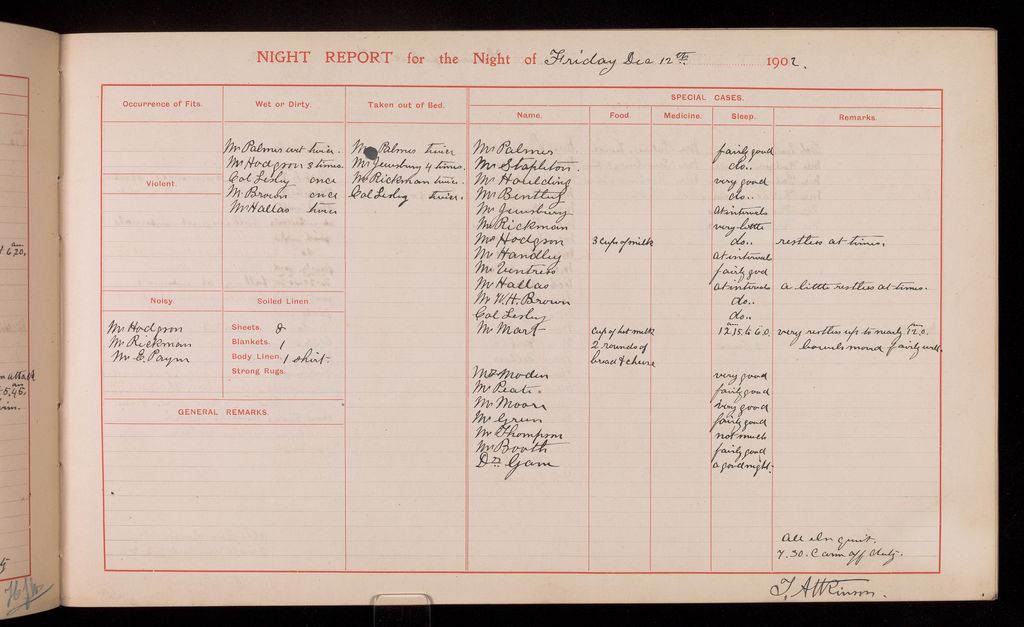 NIGHT REPORT for the Night of Friday Dec 12th 1902.
SPECIAL CASES.
Occurrence of Fits. Wet or Dirty. Taken out of Bed. Name. Food. Medicine. Sleep. Remarks.
Mr Palmes wet twice. Mr Palmes twice Mr Palmes fairly good
Mr Hodgson 3 times. Mr Jewsbury 4 times. Mr Stapleton. do..
Violent. Col Lesley once Mr Rickman twice. Mr Houlding very good
Mr Brown once Col Lesley twice. Mr Bentley do..
Mr Hallas twice Mr Jewsbury at intervals
Mr Rickman very little
Mr Hodgson 3 cups of milk do.. restless at times.
Mr Handley at interval
Mr Ventress fairly god
Mr Hallas at intervals a little restless at times.
Noisy. Soiled Linen. Mr W. H. Brown do..
Col Lesley do..
Mr Hodgson Sheets. 8 Mr Mart cup of hot milk 12 am 15 to 6.0. very restless up to nearly 12 am .0.
Mr Rickman Blankets. 1 2 rounds of bowels moved fairly well.
Mr C. Paym Body Linen. 1 shirt bread & cheese
Strong Rugs. Mr Moden very good
Mr Peat. fairly good
GENERAL REMARKS. Mr Moore very good
Mr Green fairly good
Mr Thompson not much
Mr Booth fairly good
Dr Gam a good night.
All else quiet.
7.30. C came off duty.
T. Atkinson.
+ 6 am 20.
attack
5 am 45.